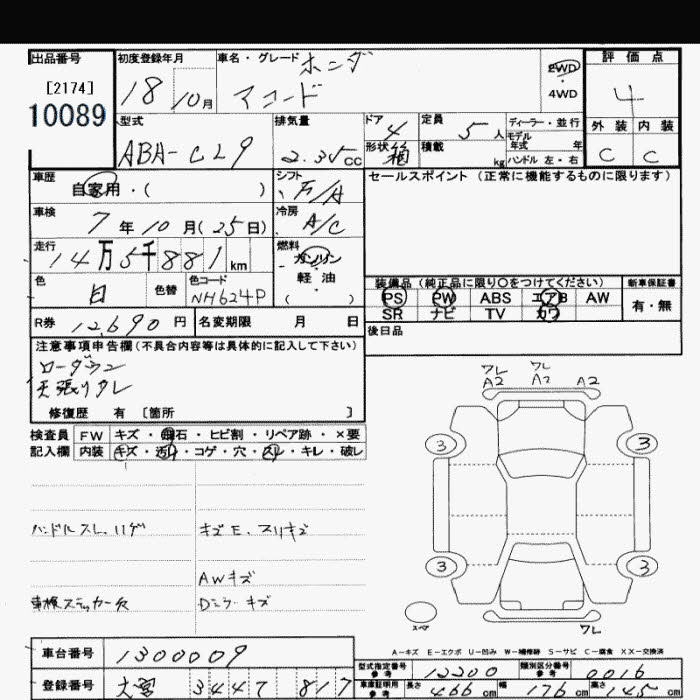 出品番号
[2174]
10089
初度登録年月
18 10月
車名・グレード
ホンダ
アコード
2WD
4WD
評価点
4
外装 内装
C C
型式
ABA-CL9
排気量
2.35 CC
ドア 4
形状 箱
定員 5 人
積載 kg
ディーラー・並行
モデル年式 年
ハンドル 左・右
車歴
自家用・( )
シフト
F/A
セールスポイント (正常に機能するものに限ります)
車検
7年10月(25日)
冷房
A/C
走行
14万5千881km
燃料
ガソリン
軽・油
( )
色
白
色替
色コード
NH624P
装備品 (純正品に限り○をつけてください)
PS PW ABS エアB AW
SR ナビ TV カワ
新車保証書
有・無
R券 12,690 円
名変期限 月 日
後日品
注意事項申告欄 (不具合内容等は具体的に記入して下さい)
ローダウン
天張りタレ
修復歴 有 [箇所 ]
検査員
記入欄
FW キズ・飛石・ヒビ割・リペア跡・×要
内装 キズ・汚れ・コゲ・穴・スレ・キレ・破レ
ハンドルスレ、ハゲ
キズE、スリキズ
AWキズ
車検ステッカー欠
ワレ ワレ
A2 A2 A2
3 3
3 3
スペア
ワレ
A-キズ E-エクボ U-凹み W-補修跡 S-サビ C-腐食 XX-交換済
車台番号 1300009
登録番号 大宮 344 817
型式指定番号 参考 12200
類別区分番号 参考 0016
車庫証明用 参考 長さ 466 cm 幅 176 cm 高さ 145 cm